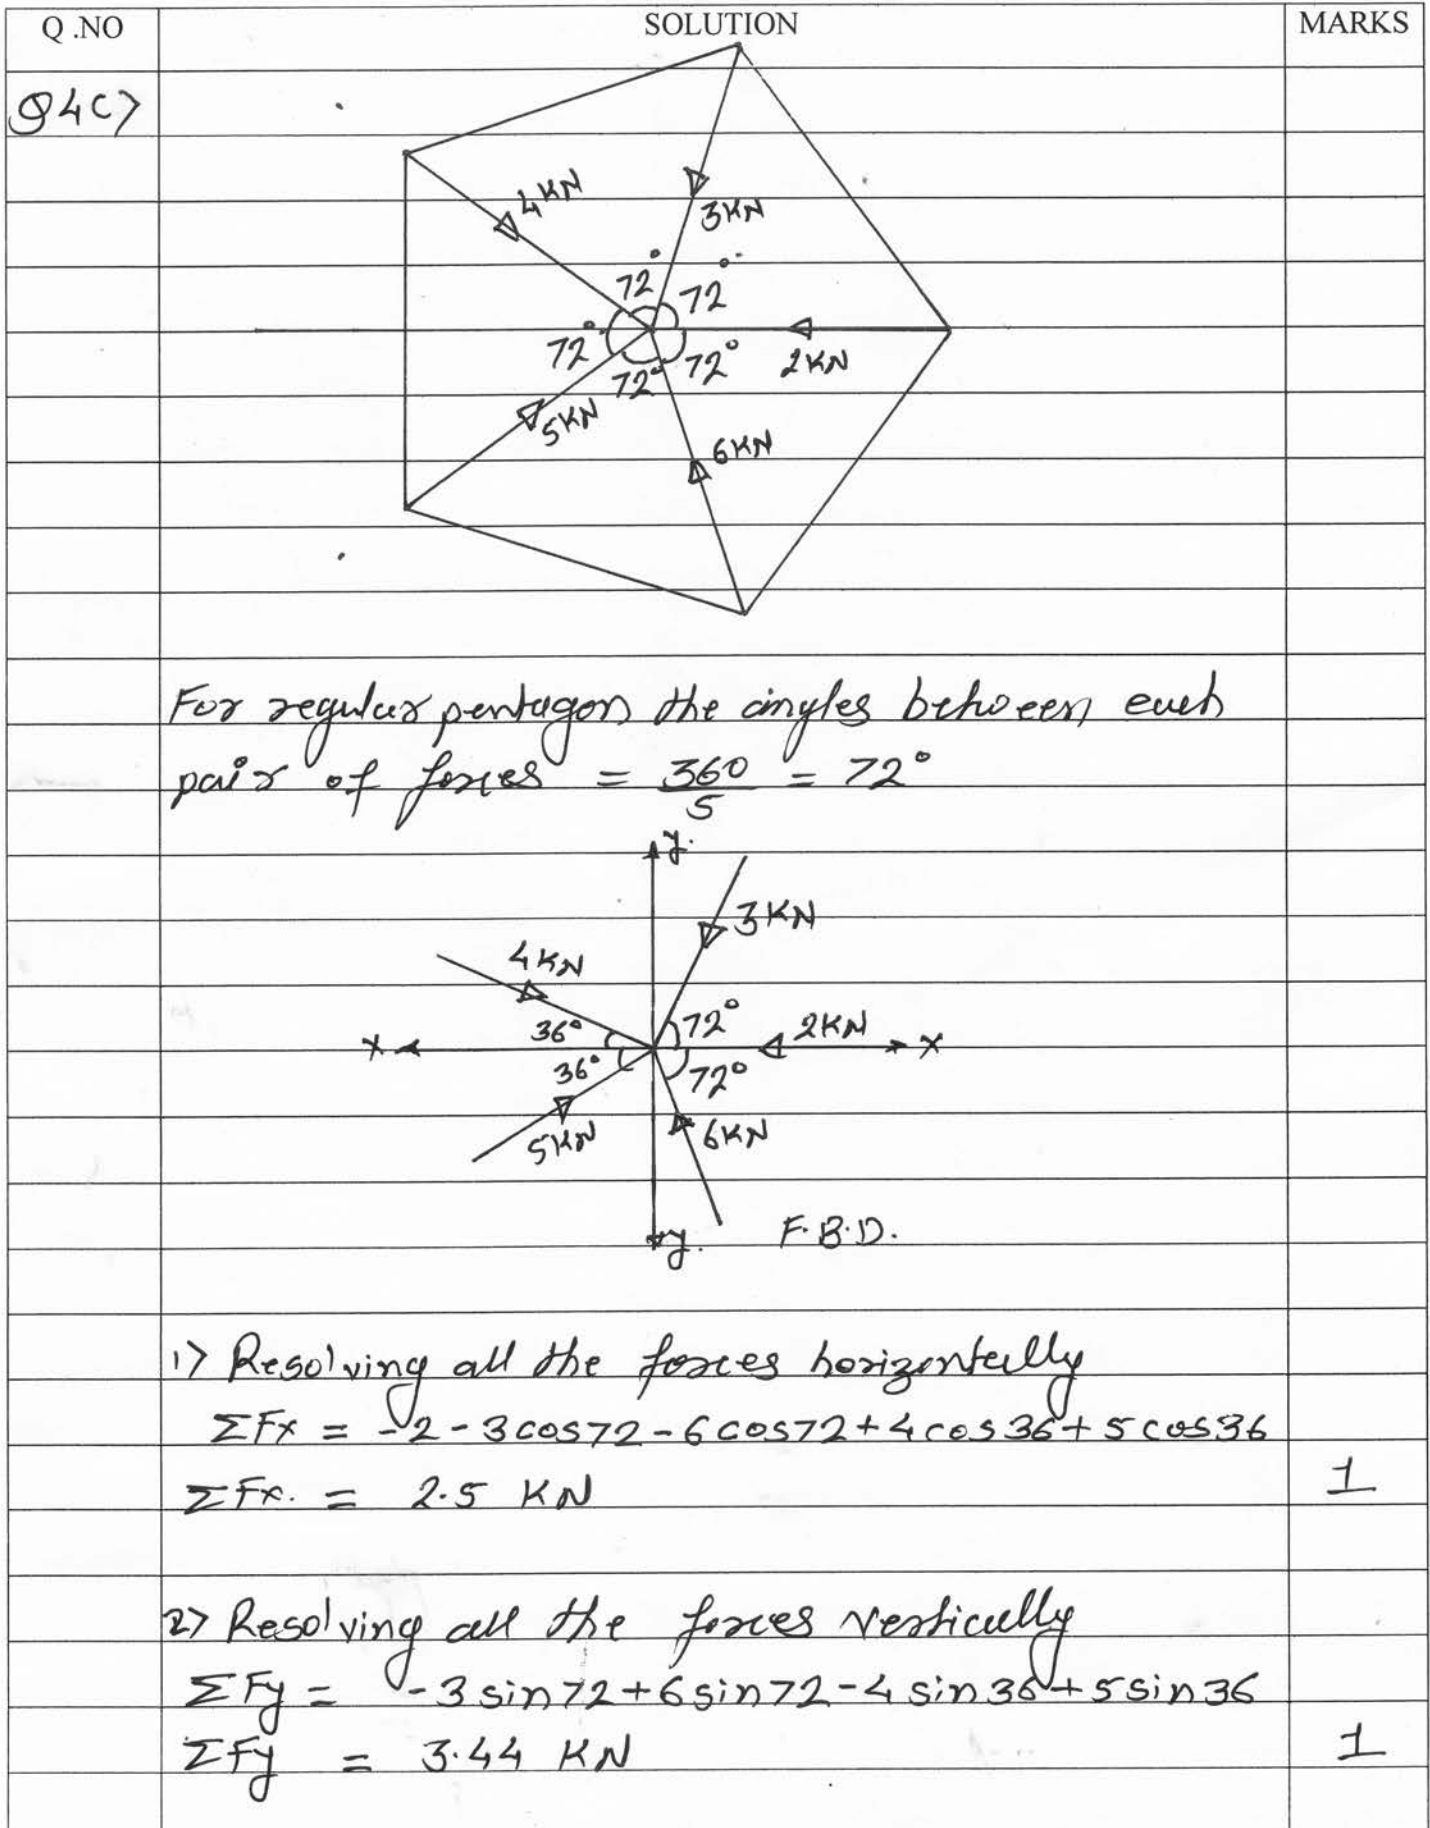 Q .NO SOLUTION MARKS
Q4C>
4KN
3KN
72° 72°
72° 72° 72° 2KN
5KN
6KN
For regular pentagon the angles between each
pair of forces = 360/5 = 72°
y.
3KN
4KN
36° 72° 2KN
X X
36° 72°
5KN 6KN
y. F.B.D.
1> Resolving all the forces horizontally
ΣFx = -2-3cos72-6cos72+4cos36+5cos36
ΣFx. = 2.5 KN 1
2> Resolving all the forces vertically
ΣFy = -3sin72+6sin72-4sin36+5sin36
ΣFy = 3.44 KN 1